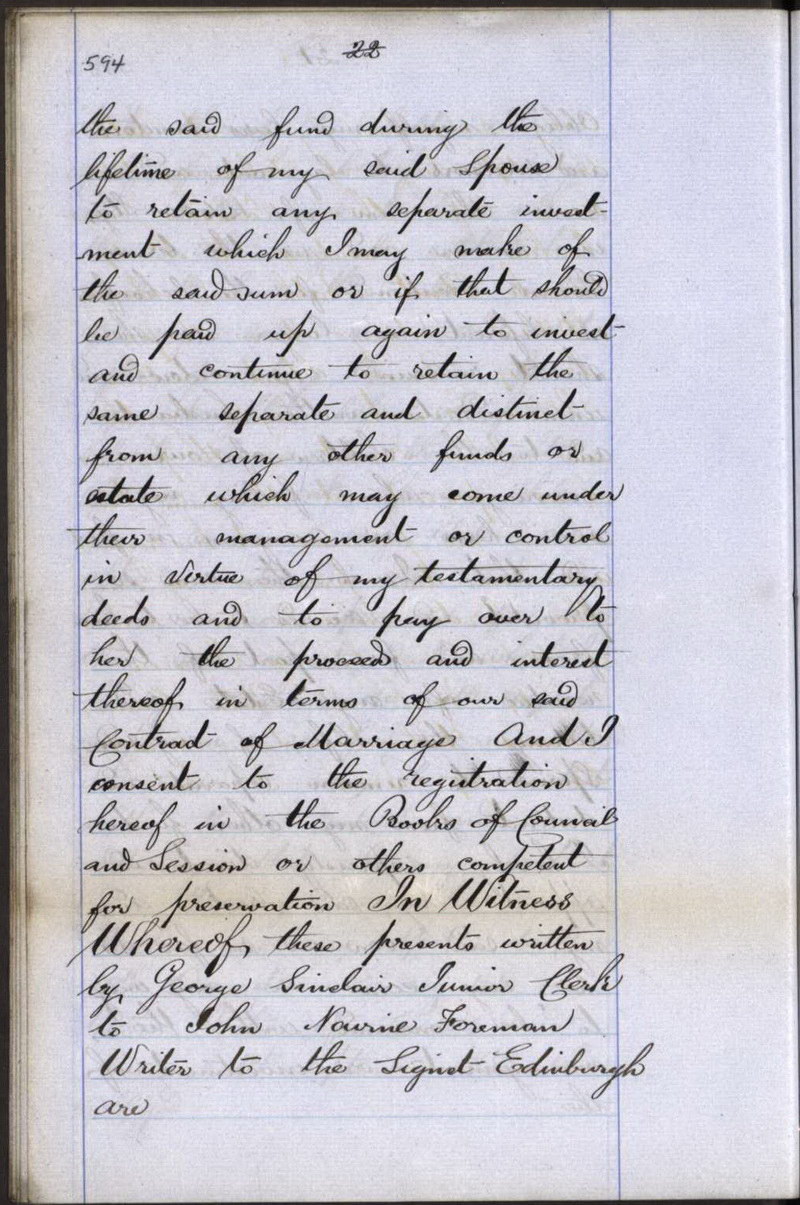 594
22
the said fund during the
lifetime of my said Spouse
to retain any separate invest-
ment which I may make of
the said sum or if that should
be paid up again to invest
and continue to retain the
same separate and distinct
from any other funds or
estate which may come under
their management or control
in virtue of my testamentary
deeds and to pay over to
her the proceed and interest
thereof in terms of our said
Contract of Marriage And I
consent to the registration
hereof in the Books of Council
and Session or others competent
for preservation In Witness
Whereof these presents written
by George Sinclair Junior Clerk
to John Nairne Foreman
Writer to the Signet Edinburgh
are